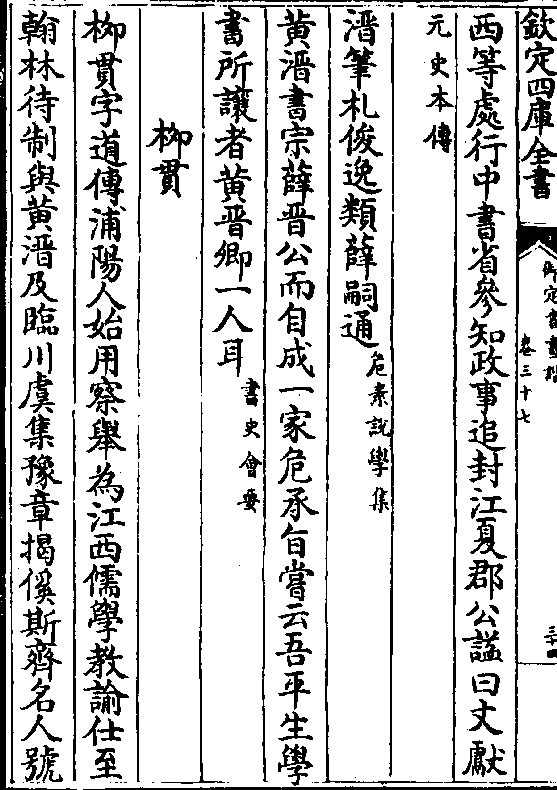 欽定四庫全書
御定書畫譜
卷三十七
三十四
西等處行中書省參知政事追封江夏郡公諡曰文獻
元史本傳
溍筆札俊逸類薛嗣通危素說學集
黃溍書宗薛晉公而自成一家危承旨嘗云吾平生學
書所讓者黃晉卿一人耳書史會要
柳貫
柳貫字道傳浦陽人始用察舉為江西儒學教諭仕至
翰林待制與黃溍及臨川虞集豫章揭傒斯齊名人號